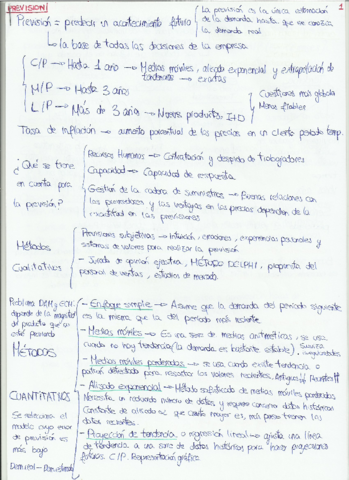 PREVISION
1
Previsión = predecir un acontecimiento futuro
La previsión es la única estimación
de la demanda hasta que se conozca
la demanda real
la base de todas las decisiones de la empresa
C/P → Hasta 1 año → Medias móviles, alisado exponencial y extrapolación de
tendencias → exactas
M/P → Hasta 3 años
L/P → Más de 3 años → Nuevos productos, I+D
Cuestiones más globales
Menos fiables
Tasa de inflación → aumento porcentual de los precios en un cierto período temp.
¿Qué se tiene
en cuenta para
la previsión?
Recursos Humanos → Contratación y despido de trabajadores
Capacidad → Capacidad de respuesta
Gestión de la cadena de suministros → Buenas relaciones con
los proveedores y las ventajas en los precios dependen de la
exactitud en las previsiones
Métodos
Cualitativos
Previsiones subjetivas → Intuición, emociones, experiencias personales y
sistemas de valores para realizar la previsión
- Jurado de opinión ejecutiva, MÉTODO DELPHI, propuesta del
personal de ventas, estudios de mercado.
Problema DAM y ECM:
depende de la magnitud
del producto que se
esté
MÉTODOS
CUANTITATIVOS
Se
modelo cuyo error
de previsión es
más bajo
- Enfoque simple → Asume que la demanda del período siguiente
es la misma que la del período más reciente.
- Medias móviles → Es una serie de medias aritméticas, se usa
cuando no hay tendencia (la demanda es bastante estable).
Suaviza
- Medias móviles ponderadas → se usa cuando existe tendencia o
patrón detectado para resaltar los valores recientes.
- Alisado exponencial → Método sofisticado de medias móviles ponderadas
Necesita un reducido número de datos, y
Constante de alisado α: que cuanto mayor es, más peso tienen los
datos recientes.
- Proyección de tendencia o regresión lineal → ajusta una línea
de tendencia a una serie de datos históricos para hacer proyecciones
futuras C/P. Representación gráfica